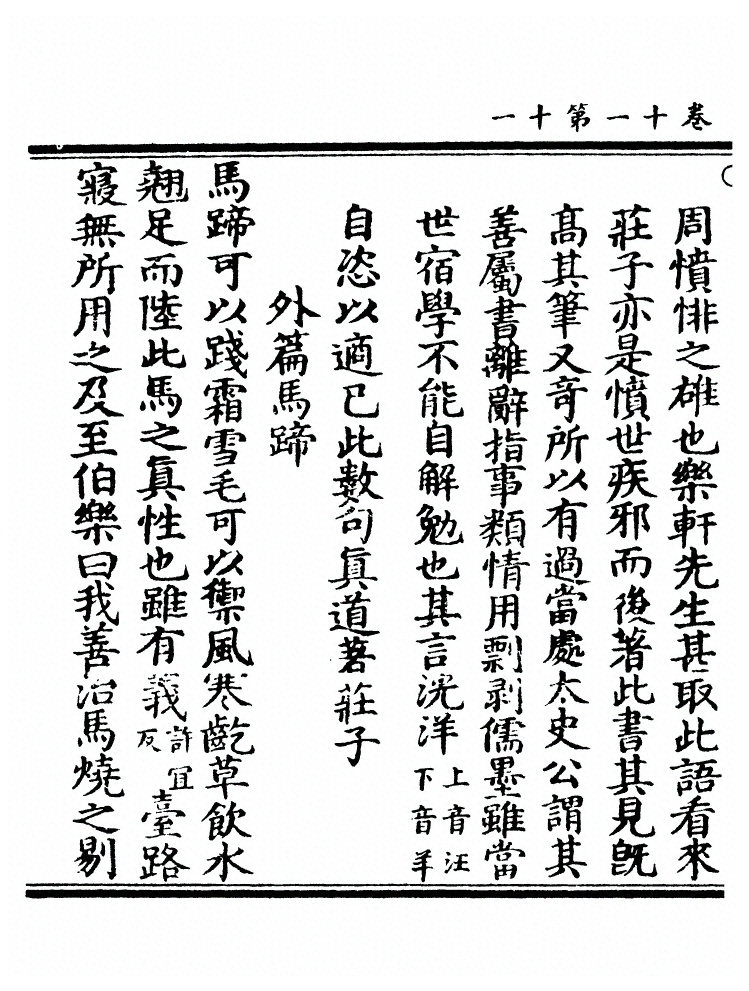 卷十一第十一
周憤悱之雄也樂軒先生甚取此語看來
莊子亦是憤世疾邪而後著此書其見既
高其筆又奇所以有過當處太史公謂其
善屬書離辭指事類情用剽剥儒墨雖當
世宿學不能自解勉也其言洸洋上音汪下音羊
自恣以適已此數句真道著莊子
外篇馬蹄
馬蹄可以踐霜雪毛可以禦風寒齕草飲水
翹足而陸此馬之真性也雖有義許宜反臺路
寢無所用之及至伯樂曰我善治馬燒之剔